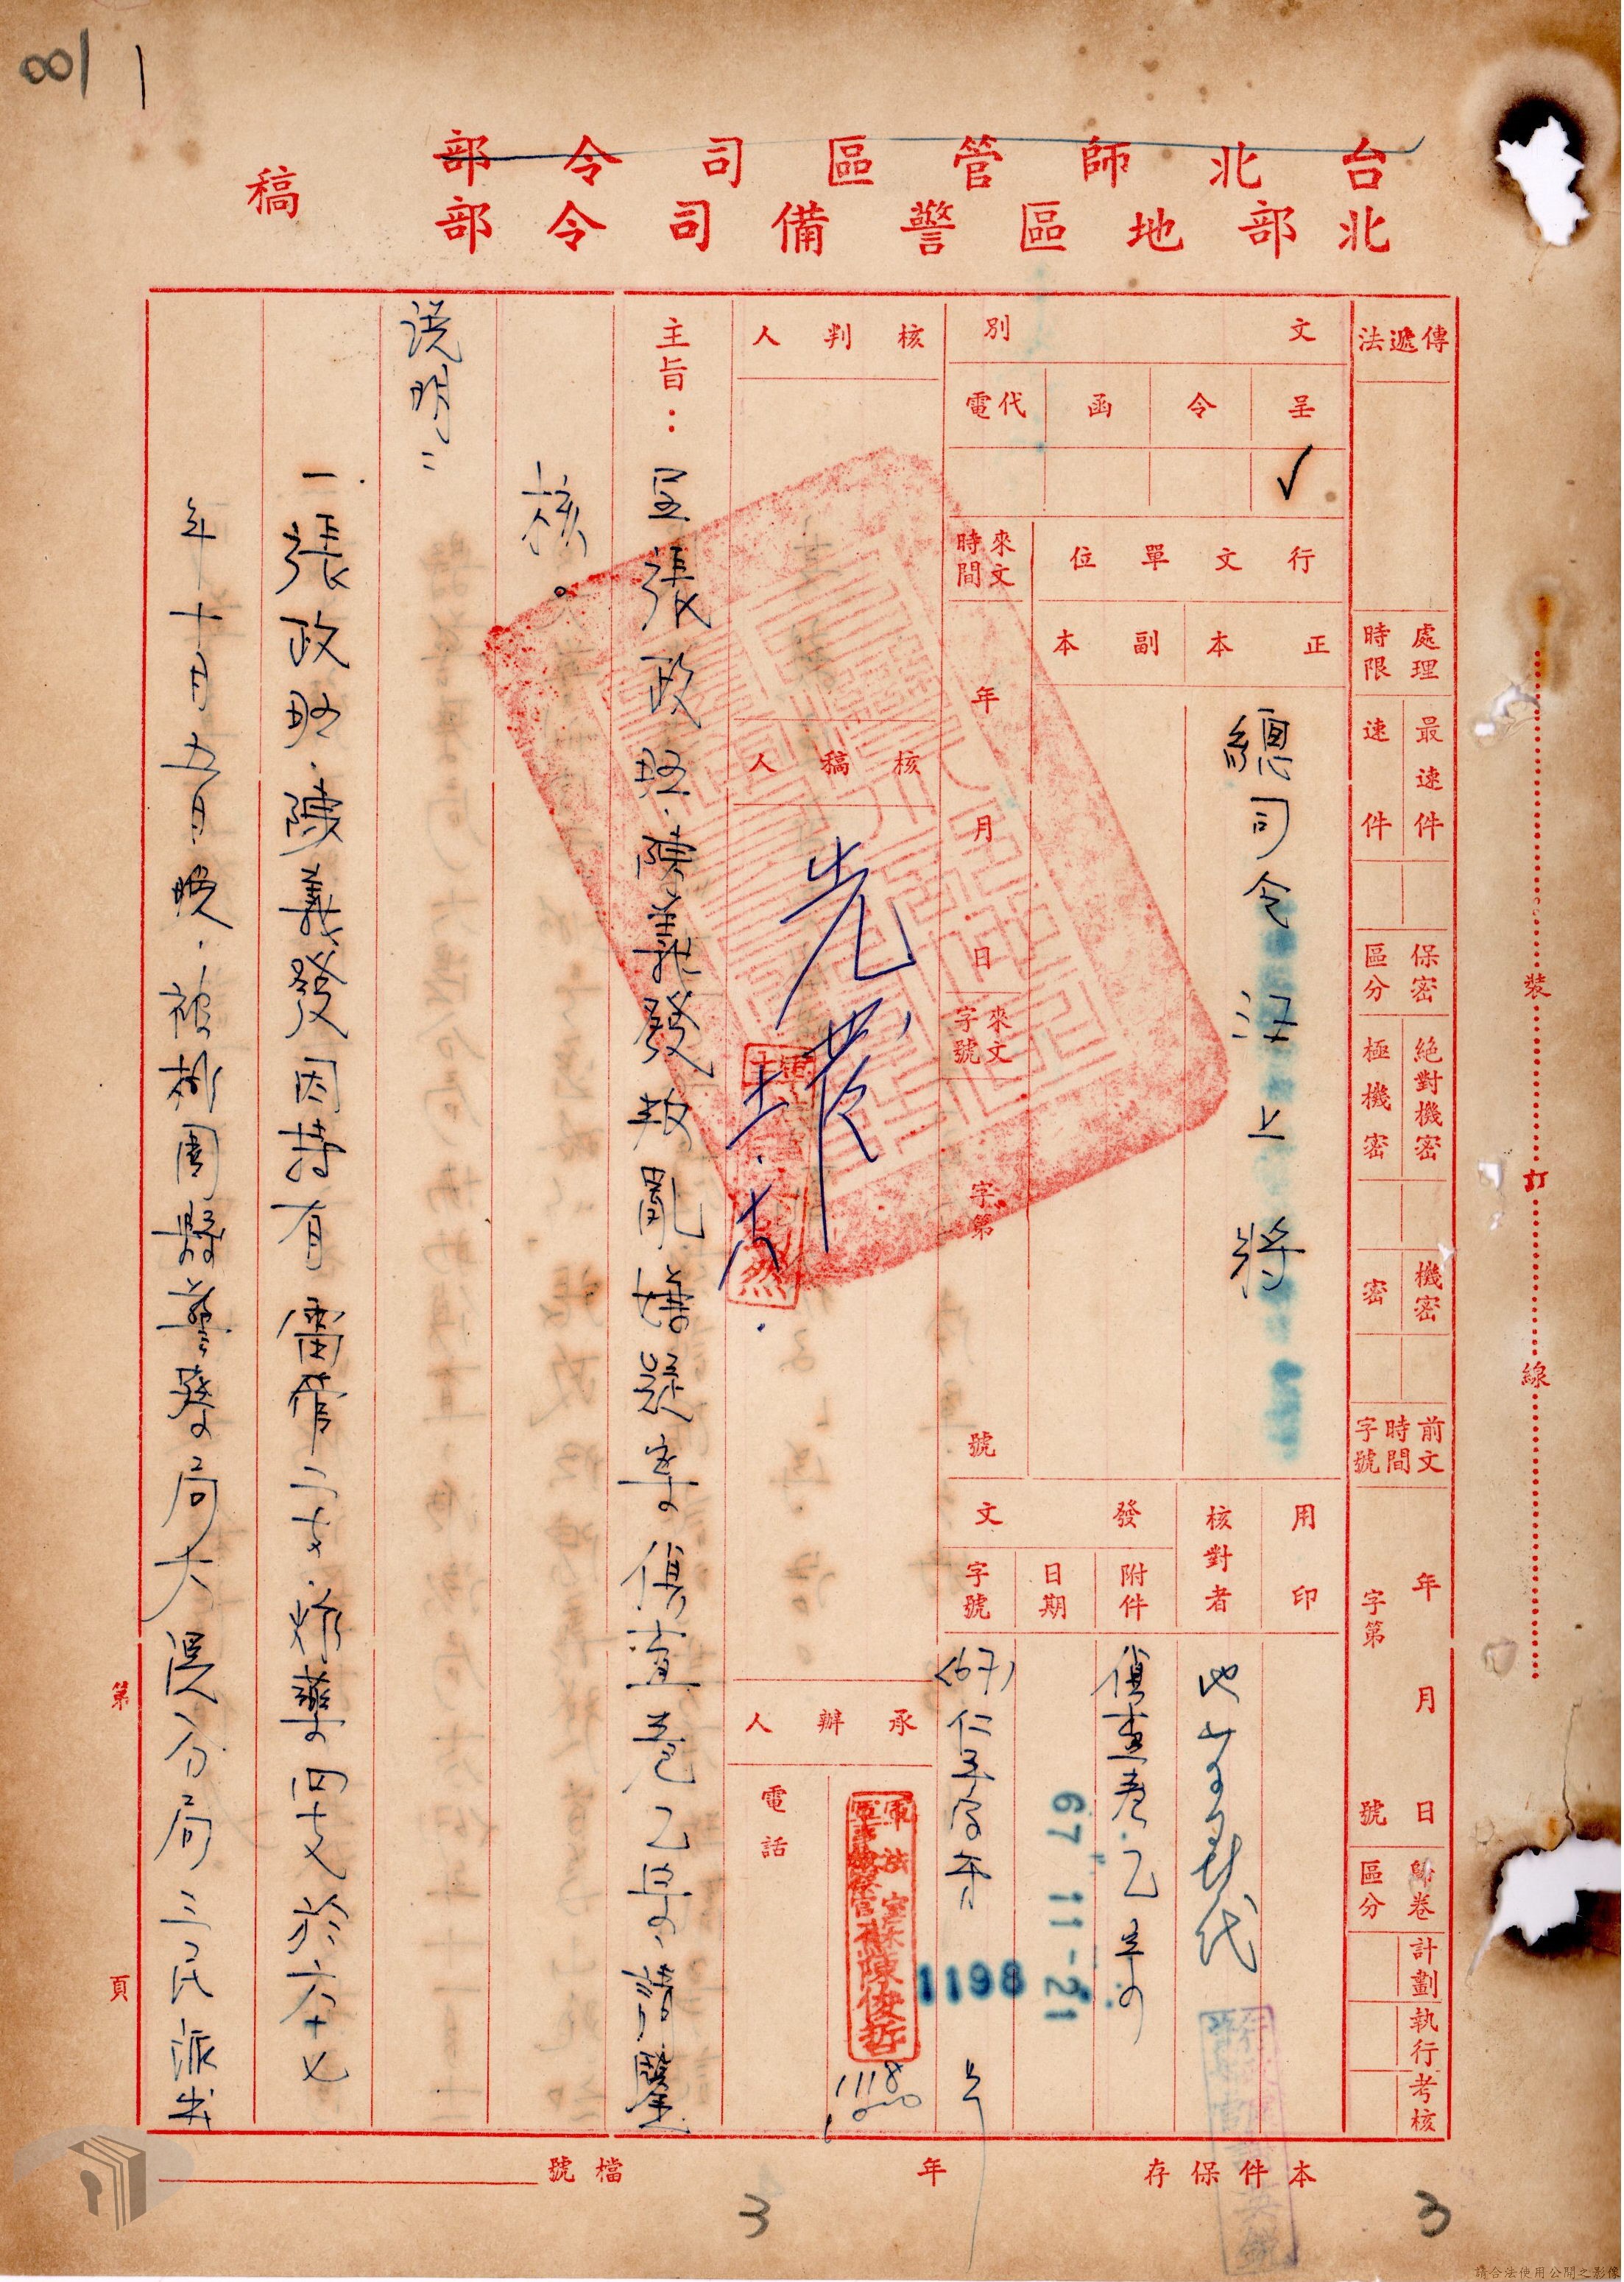 001
台北師管區司令部
北部地區警備司令部
稿
傳遞法
處理時限
最速件
速件
保密區分
絕對機密
極機密
機密
密
前文時間字號
年 月 日
字第 號
歸卷區分
計劃執行考核
文別
呈
令
函
代電
✓
行文單位
正本
副本
總司令汪上將
來文時間
年 月 日
來文字號
字第 號
用印
核對者
發文
附件
偵查卷乙宗
日期
67 11-21
字號
(67)
1198
核判人
核稿人
承辦人
軍法室
陳俊哲
1118
電話
主旨：呈張政昭、陳義發叛亂嫌疑案偵查卷乙宗、請鑒
核。
說明：
一張政昭、陳義發因持有雷管二支、炸藥四支於六十七
年十月五日晚、被桃園縣警察局大溪分局三民派出
第 頁
本件保存 年
檔號
3
3
裝
訂
線
請合法使用公開之影像